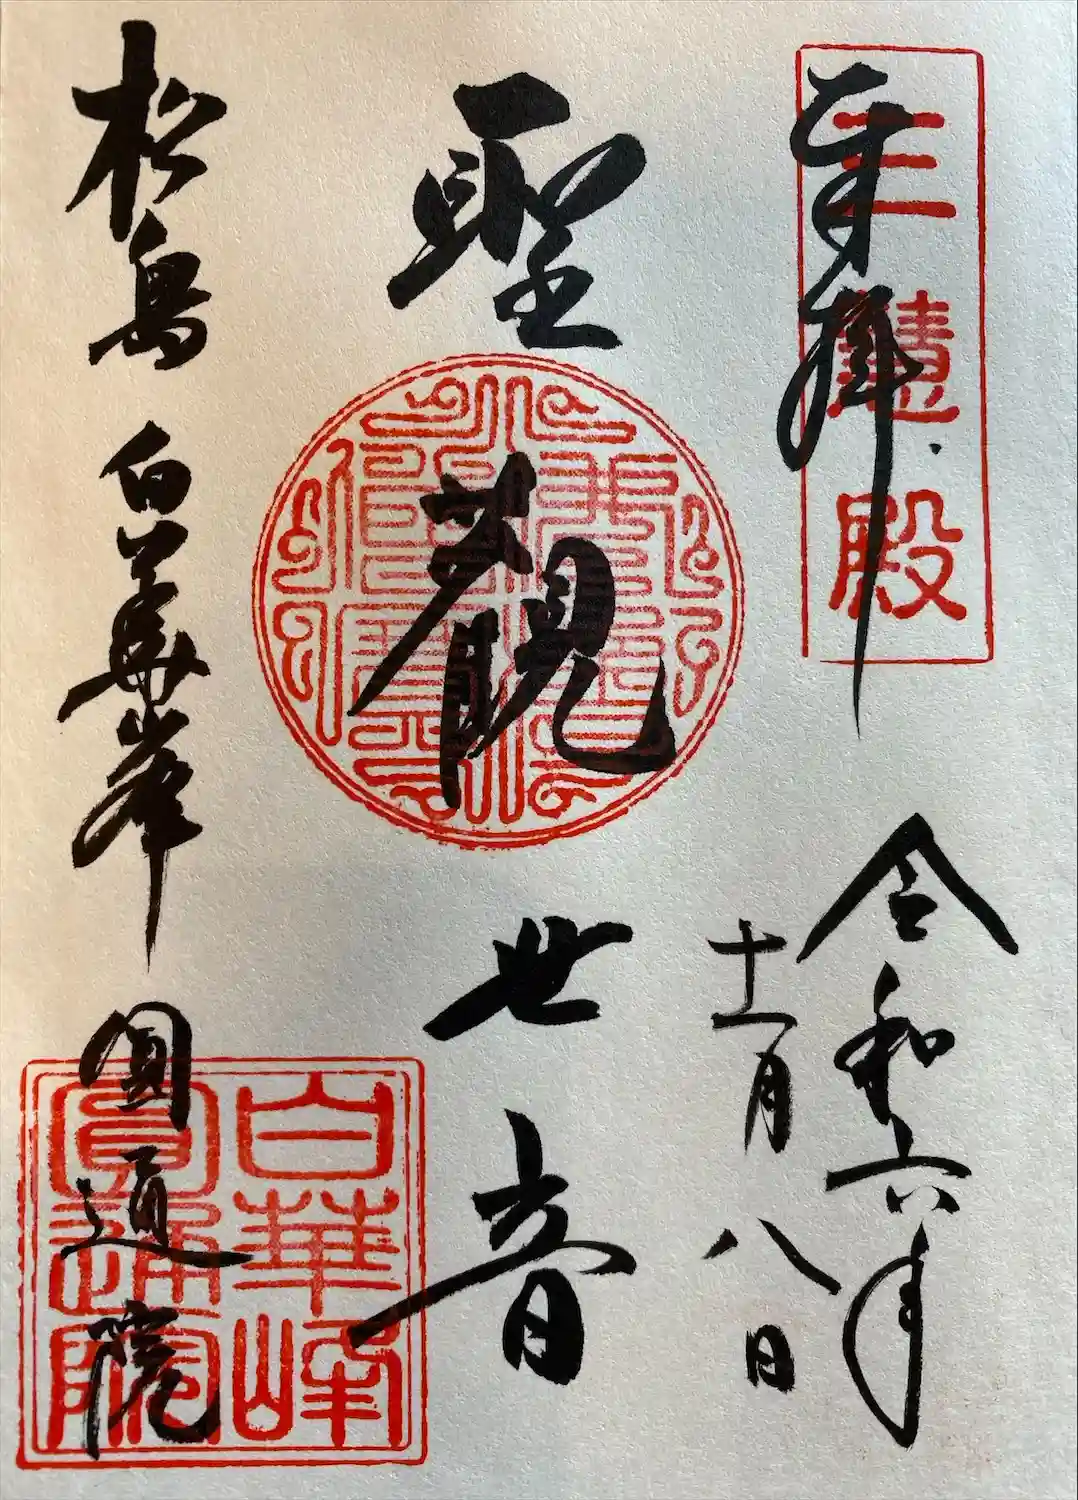 奉拝
三慧殿
令和六年
十一月八日
聖観世音
松島 白華峰 圓通院
白華峰
圓通院